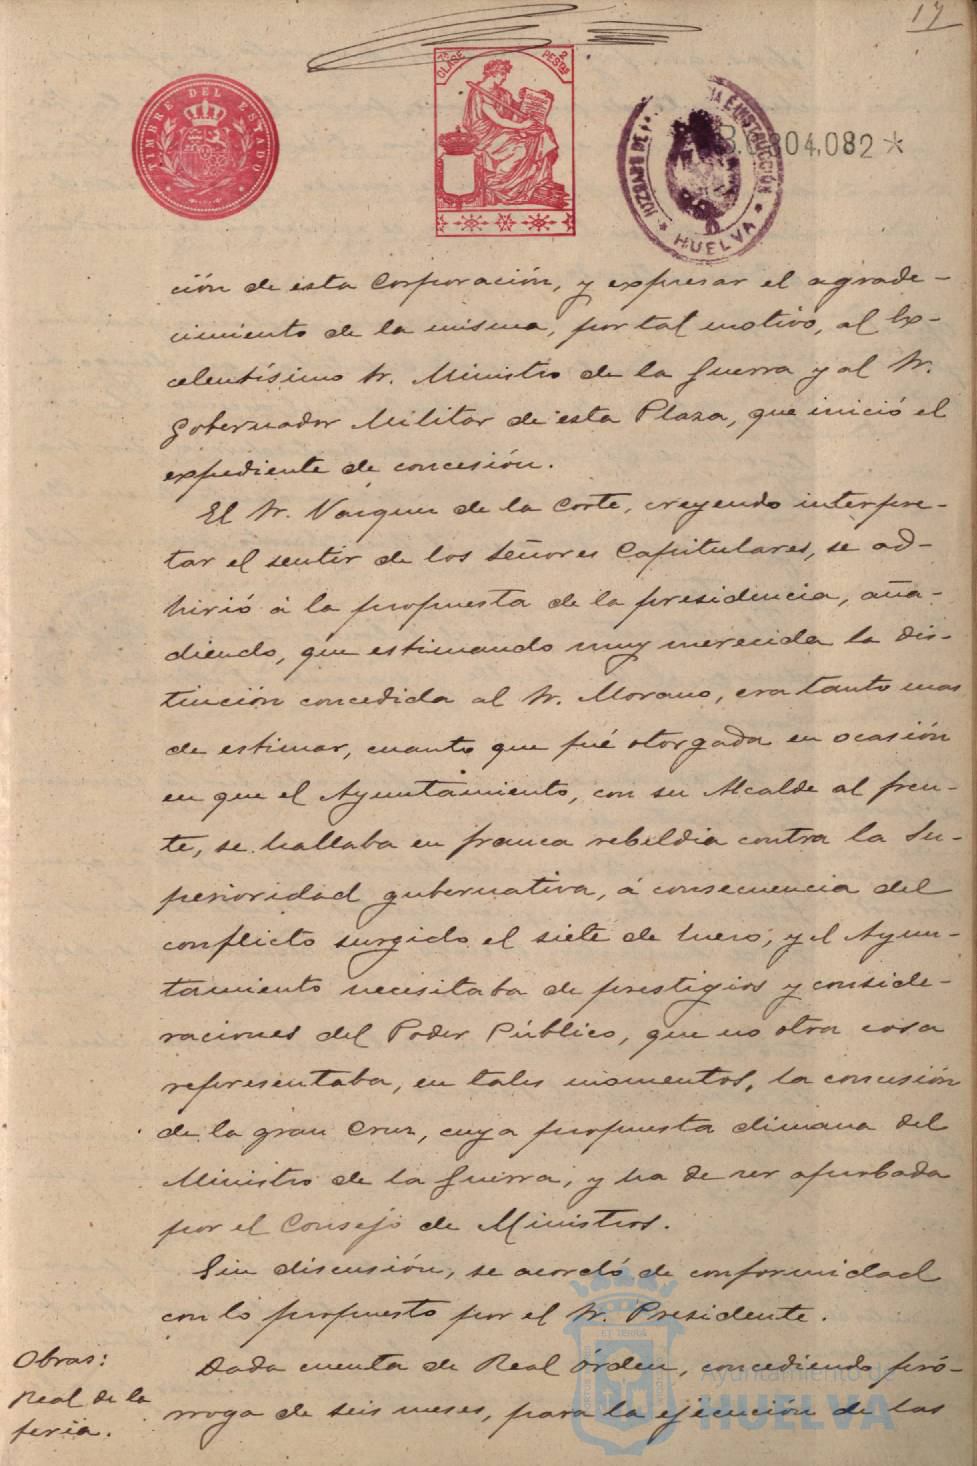 17
TIMBRE DEL ESTADO
7ª CLASE 2 PESTAS
JUZGADO DE INSTRUCCIÓN
HUELVA
04,082 *
ción de esta Corporación, y expresar el agrade-
cimiento de la misma, por tal motivo, al Ex-
celentísimo Sr. Ministro de la Guerra y al Sr.
Gobernador Militar de esta Plaza, que inició el
expediente de concesión.
El Sr. Vazquez de la Corte, creyendo interpre-
tar el sentir de los señores Capitulares, se ad-
hirió á la propuesta de la presidencia, aña-
diendo, que estimando muy merecida la dis-
tinción concedida al Sr. Morano, era tanto mas
de estimar, cuanto que fué otorgada en ocasión
en que el Ayuntamiento, con su Alcalde al fren-
te, se hallaba en franca rebeldia contra la Su-
perioridad gubernativa, á consecuencia del
conflicto surgido el siete de Enero; y el Ayun-
tamiento necesitaba de prestigios y conside-
raciones del Poder Público, que no otra cosa
representaba, en tales momentos, la concesión
de la gran Cruz, cuya propuesta dimana del
Ministro de la Guerra, y ha de ser aprobada
por el Consejo de Ministros.
Sin discusión, se acordó de conformidad
con lo propuesto por el Sr. Presidente.
Obras:
Real de la
feria.
Dada cuenta de Real órden, concediendo pró-
rroga de seis meses, para la ejecución de las
Ayuntamiento de
HUELVA